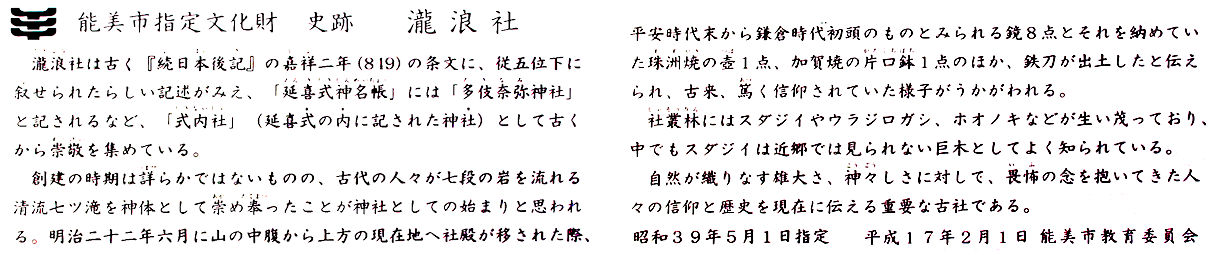 能美市指定文化財　史跡　　瀧浪社
　瀧浪社は古く『続日本後記』の嘉祥二年(819)の条文に、従五位下に
叙せられたらしい記述がみえ、「延喜式神名帳」には「多伎奈弥神社」
と記されるなど、「式内社」（延喜式の内に記された神社）として古く
から崇敬を集めている。
　創建の時期は詳らかではないものの、古代の人々が七段の岩を流れる
清流七ツ滝を神体として崇め奉ったことが神社としての始まりと思われ
る。明治二十二年六月に山の中腹から上方の現在地へ社殿が移された際、
平安時代末から鎌倉時代初頭のものとみられる鏡８点とそれを納めてい
た珠洲焼の壺１点、加賀焼の片口鉢１点のほか、鉄刀が出土したと伝え
られ、古来、篤く信仰されていた様子がうかがわれる。
　社叢林にはスダジイやウラジロガシ、ホオノキなどが生い茂っており、
中でもスダジイは近郷では見られない巨木としてよく知られている。
　自然が織りなす雄大さ、神々しさに対して、畏怖の念を抱いてきた人
々の信仰と歴史を現在に伝える重要な古社である。
昭和３９年５月１日指定　　平成１７年２月１日 能美市教育委員会